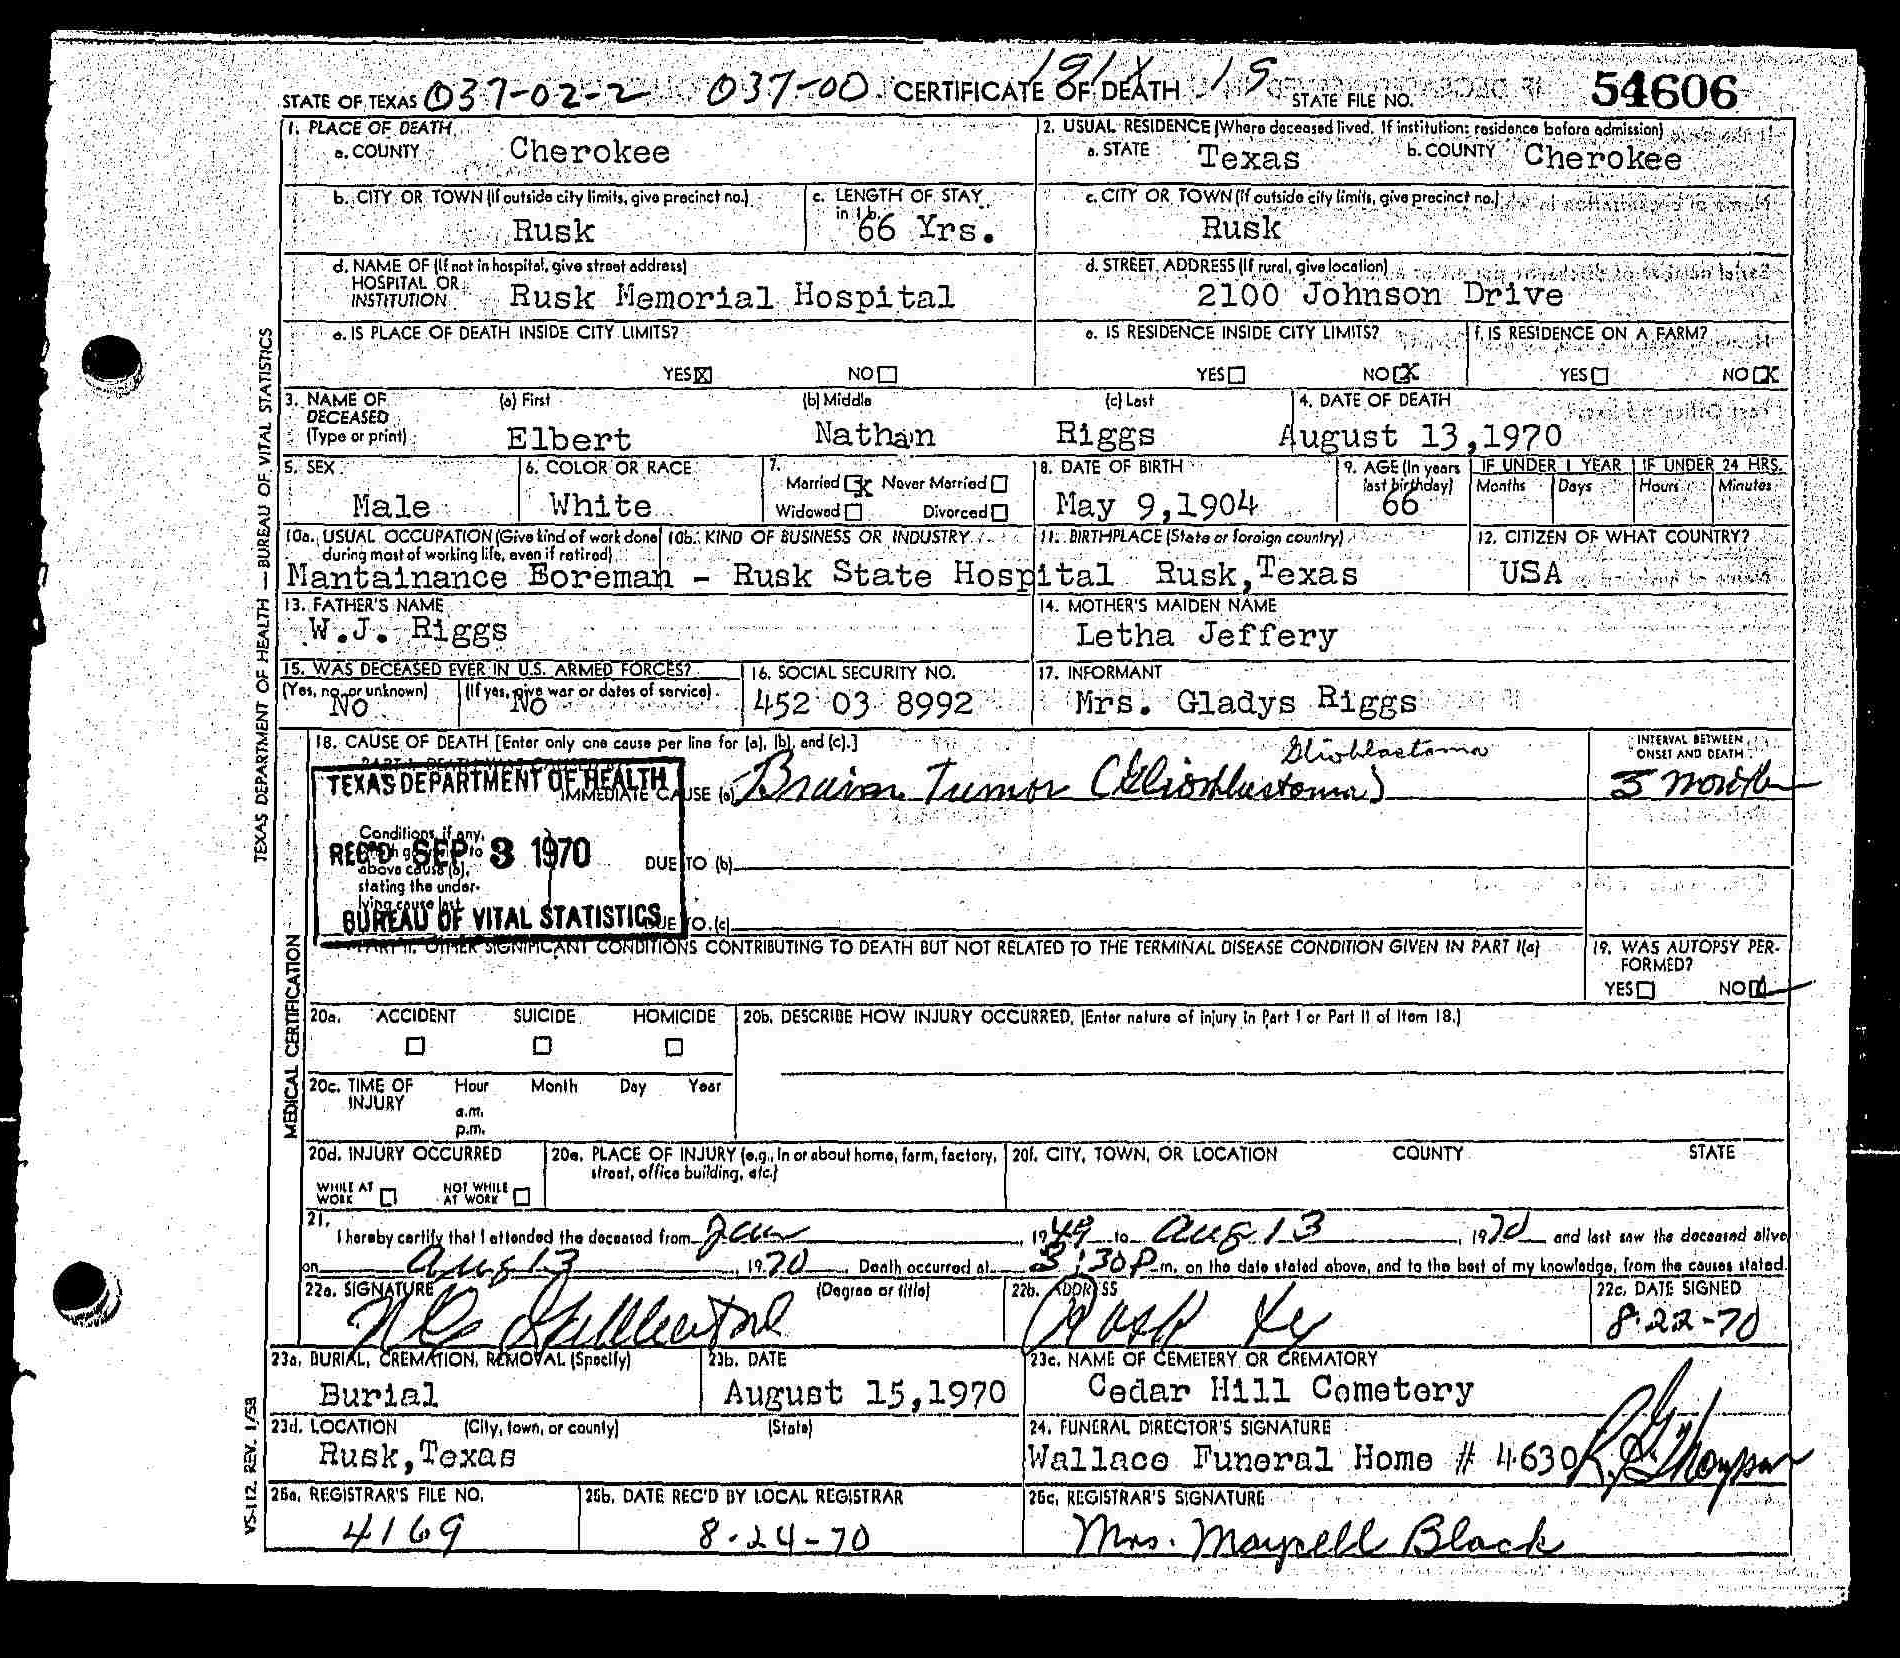 STATE OF TEXAS 037-02-2 037-00 CERTIFICATE OF DEATH 191X 19 STATE FILE NO. 54606
1. PLACE OF DEATH
a. COUNTY Cherokee
2. USUAL RESIDENCE (Where deceased lived. If institution: residence before admission)
a. STATE Texas b. COUNTY Cherokee
b. CITY OR TOWN (If outside city limits, give precinct no.) Rusk
c. LENGTH OF STAY in 1b. 66 Yrs.
c. CITY OR TOWN (If outside city limits, give precinct no.) Rusk
d. NAME OF (If not in hospital, give street address) HOSPITAL OR INSTITUTION Rusk Memorial Hospital
d. STREET ADDRESS (If rural, give location) 2100 Johnson Drive
e. IS PLACE OF DEATH INSIDE CITY LIMITS?
YES X NO
e. IS RESIDENCE INSIDE CITY LIMITS?
YES NO X
f. IS RESIDENCE ON A FARM?
YES NO X
3. NAME OF DECEASED (Type or print)
(a) First (b) Middle (c) Last
Elbert Nathan Riggs
4. DATE OF DEATH
August 13,1970
5. SEX Male
6. COLOR OR RACE White
7. Married X Never Married
Widowed Divorced
8. DATE OF BIRTH May 9,1904
9. AGE (In years last birthday) 66
IF UNDER 1 YEAR Months Days
IF UNDER 24 HRS. Hours Minutes
10a. USUAL OCCUPATION (Give kind of work done during most of working life, even if retired)
10b. KIND OF BUSINESS OR INDUSTRY
11. BIRTHPLACE (State or foreign country)
12. CITIZEN OF WHAT COUNTRY?
Mantainance Boreman - Rusk State Hospital Rusk,Texas USA
13. FATHER'S NAME
W.J. Riggs
14. MOTHER'S MAIDEN NAME
Letha Jeffery
15. WAS DECEASED EVER IN U.S. ARMED FORCES?
(Yes, no, or unknown) No
(If yes, give war or dates of service) No
16. SOCIAL SECURITY NO.
452 03 8992
17. INFORMANT
Mrs. Gladys Riggs
18. CAUSE OF DEATH [Enter only one cause per line for (a), (b), and (c).]
Glioblastoma
IMMEDIATE CAUSE (a) Brain Tumor (Glioblastoma)
INTERVAL BETWEEN ONSET AND DEATH
TEXAS DEPARTMENT OF HEALTH
REC'D SEP 3 1970
BUREAU OF VITAL STATISTICS
Conditions, if any,
above cause (a),
stating the under-
lying cause last.
DUE TO (b)
DUE TO (c)
PART II. OTHER SIGNIFICANT CONDITIONS CONTRIBUTING TO DEATH BUT NOT RELATED TO THE TERMINAL DISEASE CONDITION GIVEN IN PART I(a)
19. WAS AUTOPSY PERFORMED?
YES NO
20a. ACCIDENT SUICIDE HOMICIDE
20b. DESCRIBE HOW INJURY OCCURRED. (Enter nature of injury in Part I or Part II of Item 18.)
20c. TIME OF INJURY Hour Month Day Year
a.m.
p.m.
20d. INJURY OCCURRED
WHILE AT WORK NOT WHILE AT WORK
20e. PLACE OF INJURY (e.g., in or about home, farm, factory, street, office building, etc.)
20f. CITY, TOWN, OR LOCATION COUNTY STATE
21. I hereby certify that I attended the deceased from Jan, 1949 to Aug 13, 1970 and last saw the deceased alive
on Aug 13, 1970. Death occurred at 3:30 P m. on the date stated above, and to the best of my knowledge, from the causes stated.
22a. SIGNATURE (Degree or title)
22b. ADDRESS
Rusk Tex
22c. DATE SIGNED
8-22-70
23a. BURIAL, CREMATION, REMOVAL (Specify)
Burial
23b. DATE
August 15,1970
23c. NAME OF CEMETERY OR CREMATORY
Cedar Hill Cemetery
23d. LOCATION (City, town, or county) (State)
Rusk,Texas
24. FUNERAL DIRECTOR'S SIGNATURE
Wallace Funeral Home # 4630 Thompson
25a. REGISTRAR'S FILE NO.
4169
25b. DATE REC'D BY LOCAL REGISTRAR
8-24-70
25c. REGISTRAR'S SIGNATURE
Mrs. Mayrell Black
TEXAS DEPARTMENT OF HEALTH — BUREAU OF VITAL STATISTICS
MEDICAL CERTIFICATION
VS-112 REV. 1/58